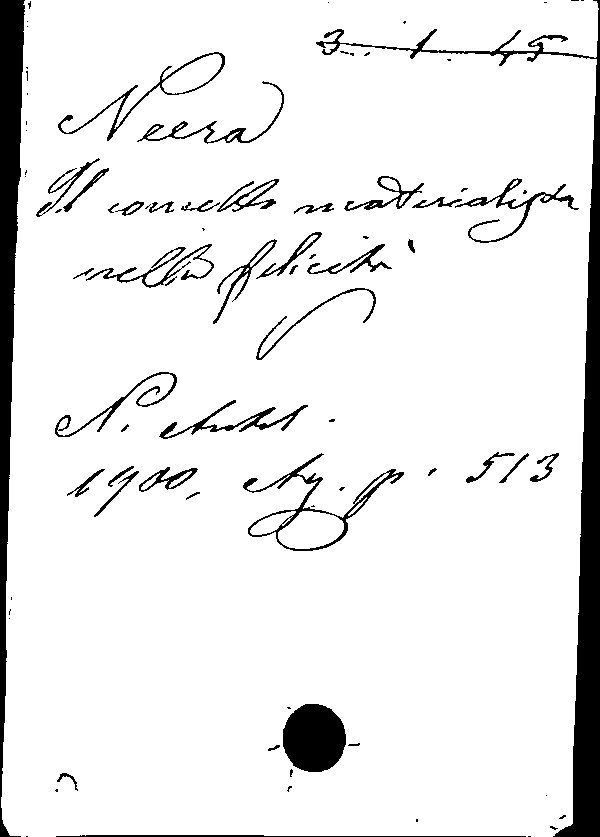 3. 1. 45
Neera
Il concetto materialista
nella felicità
N. Antol.
1900, Ag. p. 513